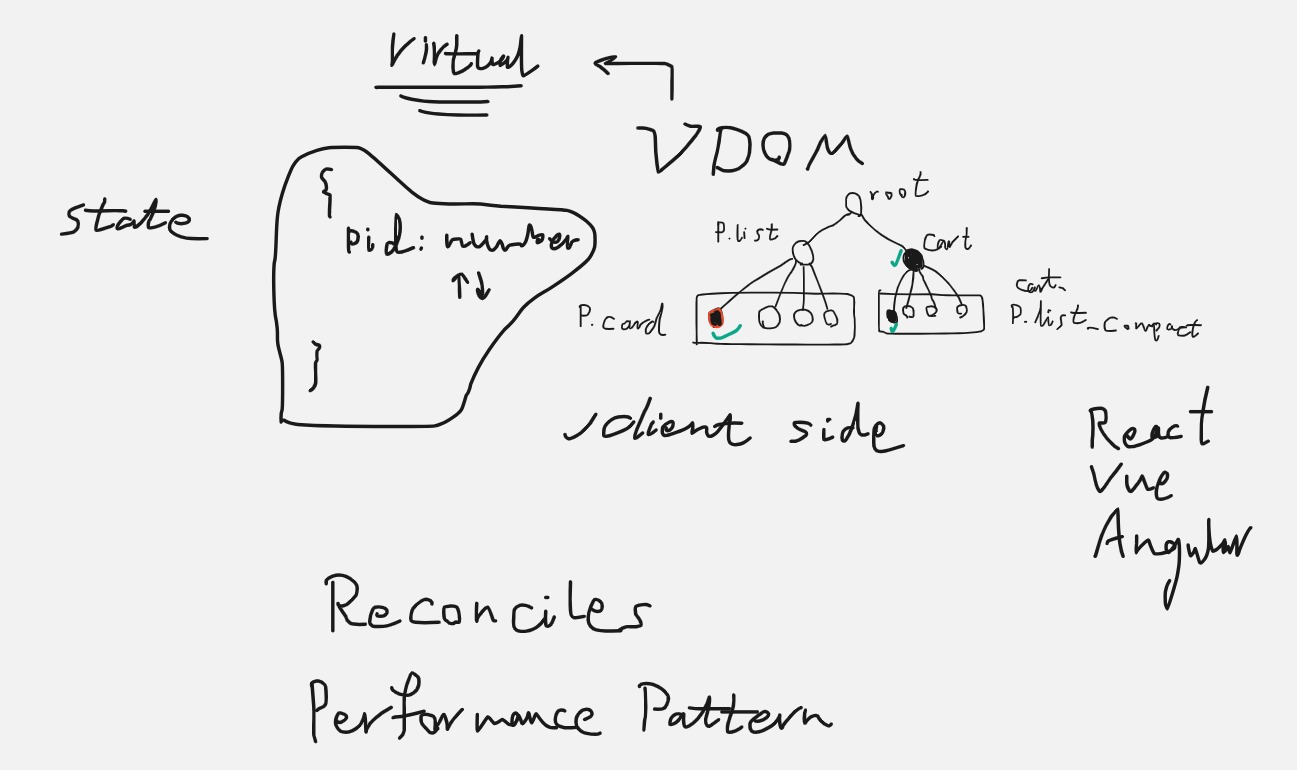 Virtual
VDOM
root
state
{
pid: number
↑↓
}
P.list
Cart
P.card
cart-
P.list-compact
client side
React
Vue
Angular
Reconciles
Performance Pattern